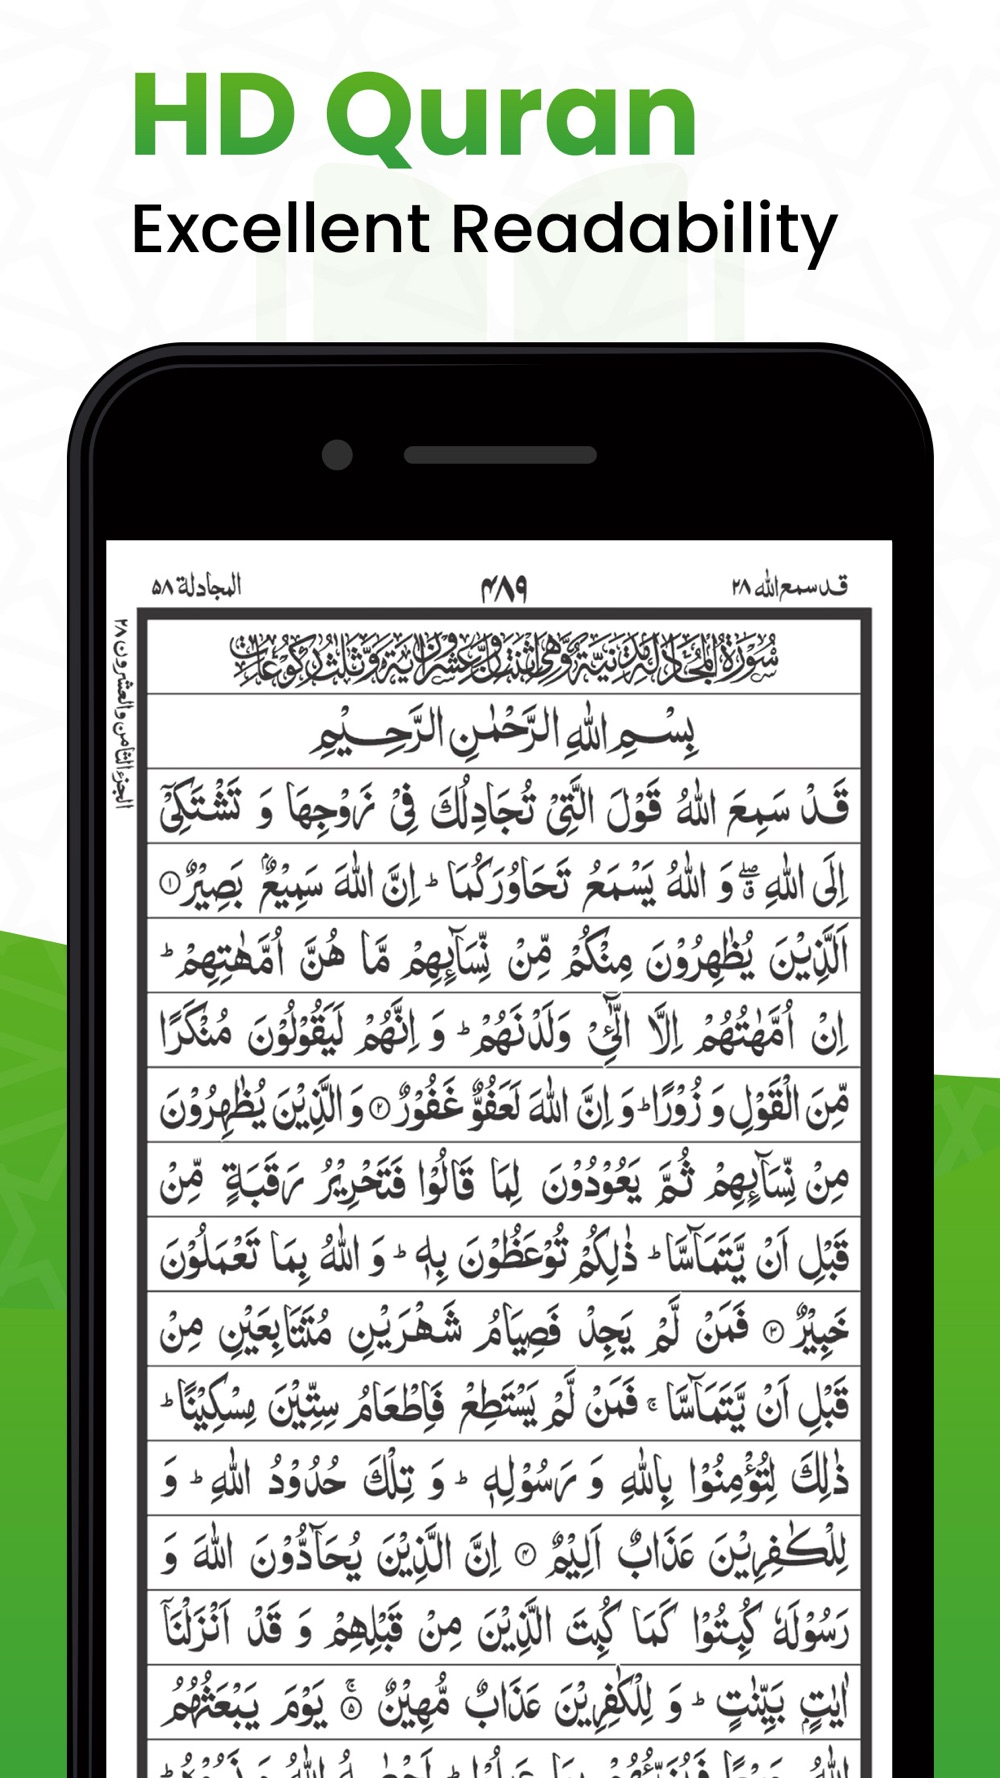 HD Quran
Excellent Readability
المجادلة ۵۸
۴۸۹
قد سمع الله ۲۸
الجزء الثامن والعشرون ۲۸
سُوْرَةُ الْمُجَادَلَةِ مَدَنِيَّةٌ وَّهِيَ اثْنَتَانِ وَعِشْرُوْنَ اٰيَةً وَّثَلٰثُ رُكُوْعَاتٍ
بِسْمِ اللّٰهِ الرَّحْمٰنِ الرَّحِيْمِ
قَدْ سَمِعَ اللّٰهُ قَوْلَ الَّتِيْ تُجَادِلُكَ فِيْ زَوْجِهَا وَ تَشْتَكِيْۤ
اِلَى اللّٰهِ ۖۗ وَ اللّٰهُ يَسْمَعُ تَحَاوُرَكُمَا ؕ اِنَّ اللّٰهَ سَمِيْعٌۢ بَصِيْرٌ ۝۱
اَلَّذِيْنَ يُظٰهِرُوْنَ مِنْكُمْ مِّنْ نِّسَآىِٕهِمْ مَّا هُنَّ اُمَّهٰتِهِمْ ؕ
اِنْ اُمَّهٰتُهُمْ اِلَّا الّٰٓـِٔيْ وَلَدْنَهُمْ ؕ وَ اِنَّهُمْ لَيَقُوْلُوْنَ مُنْكَرًا
مِّنَ الْقَوْلِ وَ زُوْرًا ؕ وَ اِنَّ اللّٰهَ لَعَفُوٌّ غَفُوْرٌ ۝۲ وَ الَّذِيْنَ يُظٰهِرُوْنَ
مِنْ نِّسَآىِٕهِمْ ثُمَّ يَعُوْدُوْنَ لِمَا قَالُوْا فَتَحْرِيْرُ رَقَبَةٍ مِّنْ
قَبْلِ اَنْ يَّتَمَآسَّا ؕ ذٰلِكُمْ تُوْعَظُوْنَ بِهٖ ؕ وَ اللّٰهُ بِمَا تَعْمَلُوْنَ
خَبِيْرٌ ۝۳ فَمَنْ لَّمْ يَجِدْ فَصِيَامُ شَهْرَيْنِ مُتَتَابِعَيْنِ مِنْ
قَبْلِ اَنْ يَّتَمَآسَّا ۚ فَمَنْ لَّمْ يَسْتَطِعْ فَاِطْعَامُ سِتِّيْنَ مِسْكِيْنًا ؕ
ذٰلِكَ لِتُؤْمِنُوْا بِاللّٰهِ وَ رَسُوْلِهٖ ؕ وَ تِلْكَ حُدُوْدُ اللّٰهِ ؕ وَ
لِلْكٰفِرِيْنَ عَذَابٌ اَلِيْمٌ ۝۴ اِنَّ الَّذِيْنَ يُحَآدُّوْنَ اللّٰهَ وَ
رَسُوْلَهٗ كُبِتُوْا كَمَا كُبِتَ الَّذِيْنَ مِنْ قَبْلِهِمْ وَ قَدْ اَنْزَلْنَاۤ
اٰيٰتٍۭ بَيِّنٰتٍ ؕ وَ لِلْكٰفِرِيْنَ عَذَابٌ مُّهِيْنٌ ۝۵ۚ يَوْمَ يَبْعَثُهُمُ